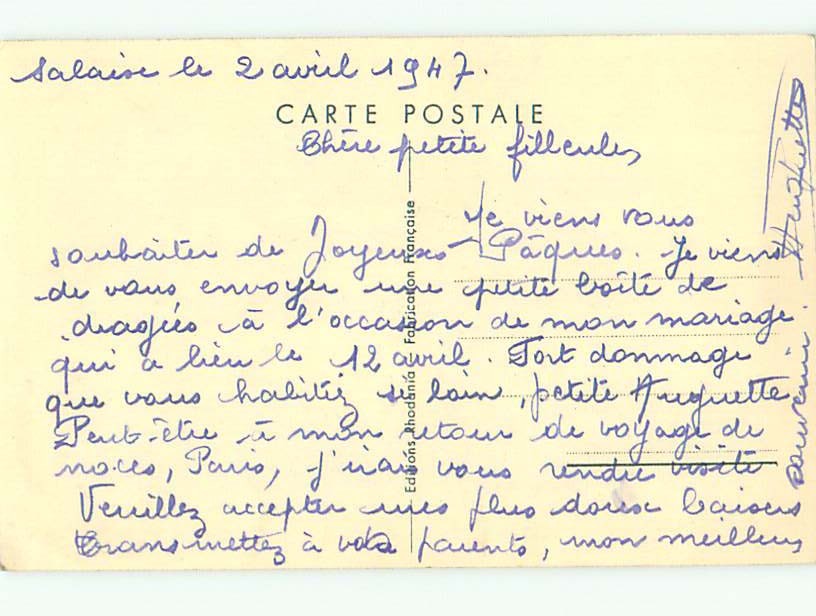 Salaise le 2 avril 1947.
CARTE POSTALE
Chère petite filleule,
Je viens vous
souhaiter de Joyeuses Pâques. Je viens
de vous envoyer une petite boîte de
dragées à l'occasion de mon mariage
qui a lieu le 12 avril. Fort dommage
que vous habitiez si loin, petite Huguette.
Peut-être à mon retour de voyage de
noces, Paris, j'irai vous rendre visite
Veuillez accepter mes plus doux baisers
Transmettez à vos parents, mon meilleur
souvenir. Huguette
Editions Rhodania - Fabrication Française